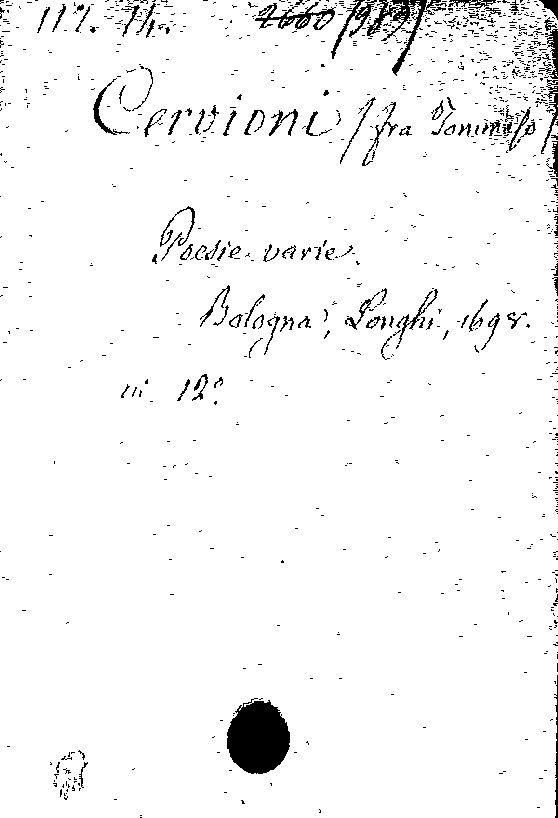 117. 14. 2660 /989/
Cervioni /fra Tommaso/
Poesie varie.
Bologna, Longhi, 1698.
in 12°